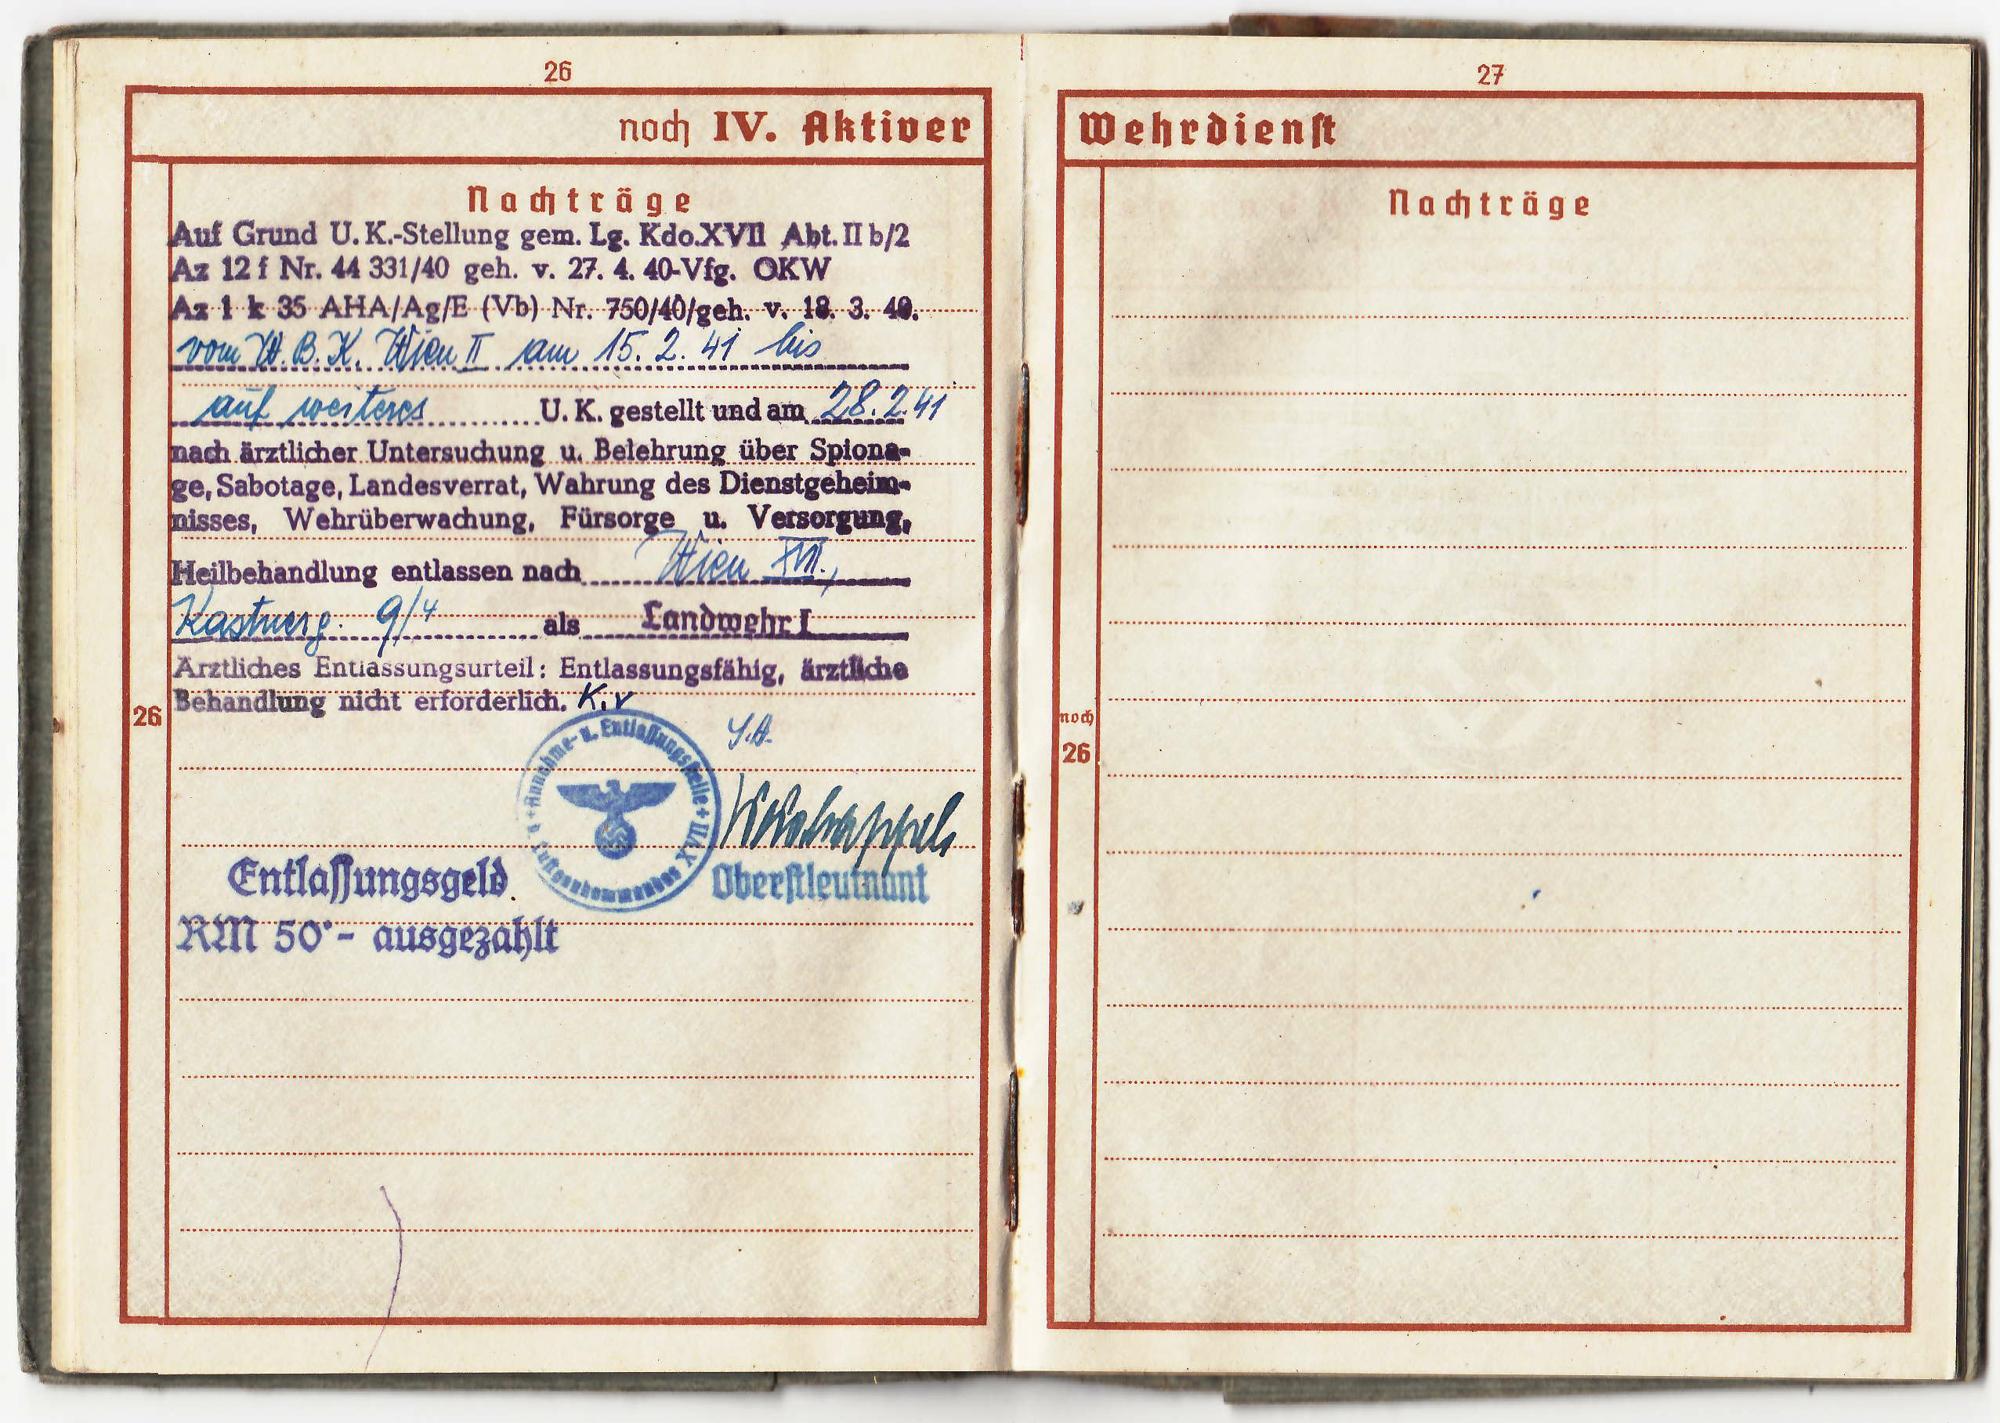 26
noch IV. Aktiver
Nachträge
Auf Grund U.K.-Stellung gem. Lg. Kdo.XVII Abt. II b/2
Az 12 f Nr. 44 331/40 geh. v. 27. 4. 40-Vfg. OKW
Az 1 k 35 AHA/Ag/E (Vb) Nr. 750/40/geh. v. 18. 3. 40.
vom W.B.K. Wien II am 15.2.41 bis
auf weiteres U.K. gestellt und am 28.2.41
nach ärztlicher Untersuchung u. Belehrung über Spiona-
ge, Sabotage, Landesverrat, Wahrung des Dienstgeheim-
nisses, Wehrüberwachung, Fürsorge u. Versorgung,
Heilbehandlung entlassen nach Wien XVII.,
Kastnerg. 9/4 als Landwehr I
Ärztliches Entlassungsurteil: Entlassungsfähig, ärztliche
Behandlung nicht erforderlich. K.v
26
Annahme- u. Entlassungsstelle + XVII
Oberstleutnant
Entlassungsgeld
RM 50·- ausgezahlt
27
Wehrdienst
Nachträge
noch
26